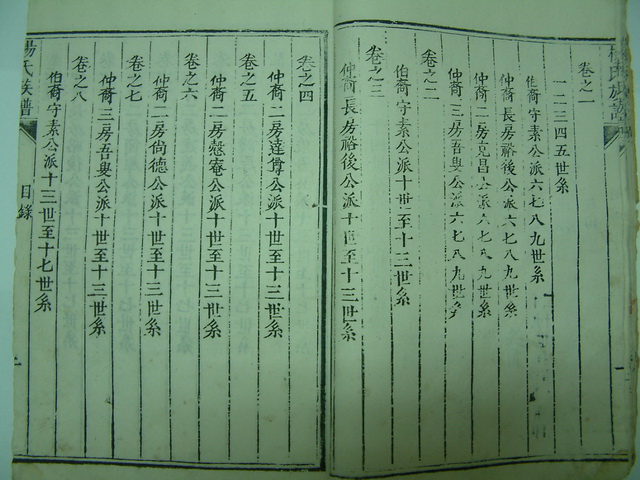 楊氏族譜
卷之一
一二三四五世系
伯裔守素公派六七八九世系
仲裔長房裕後公派六七八九世系
仲裔二房克昌公派六七八九世系
仲裔三房吾與公派六七八九世系
卷之二
伯裔守素公派十世至十三世系
卷之三
仲裔長房裕後公派十世至十三世系
卷之四
仲裔二房達尊公派十世至十三世系
卷之五
仲裔二房慤庵公派十世至十三世系
卷之六
仲裔二房尙德公派十世至十三世系
卷之七
仲裔三房吾與公派十世至十三世系
卷之八
伯裔守素公派十三世至十七世系
楊氏族譜
目錄